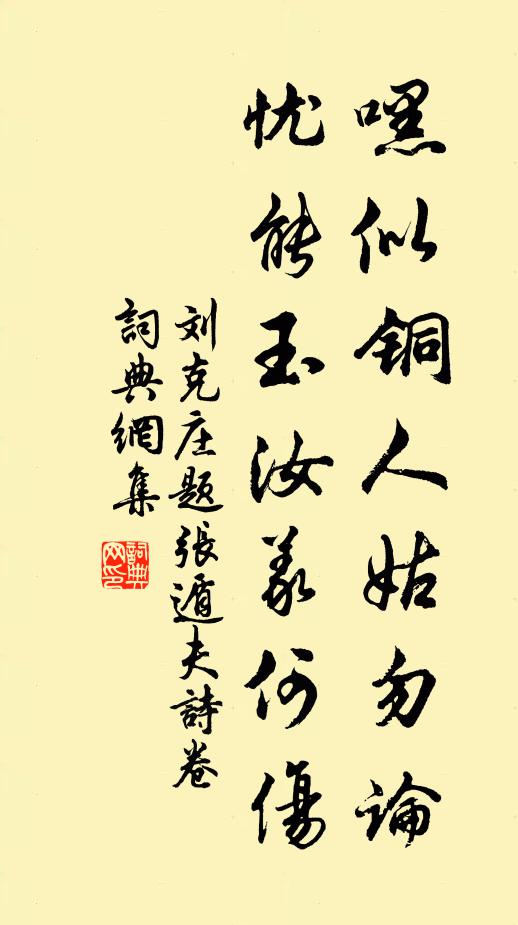 嘿似铜人姑勿論
忧能玉汝義何傷
刘克庄题張遁夫詩卷
詞典網集
詞典网印